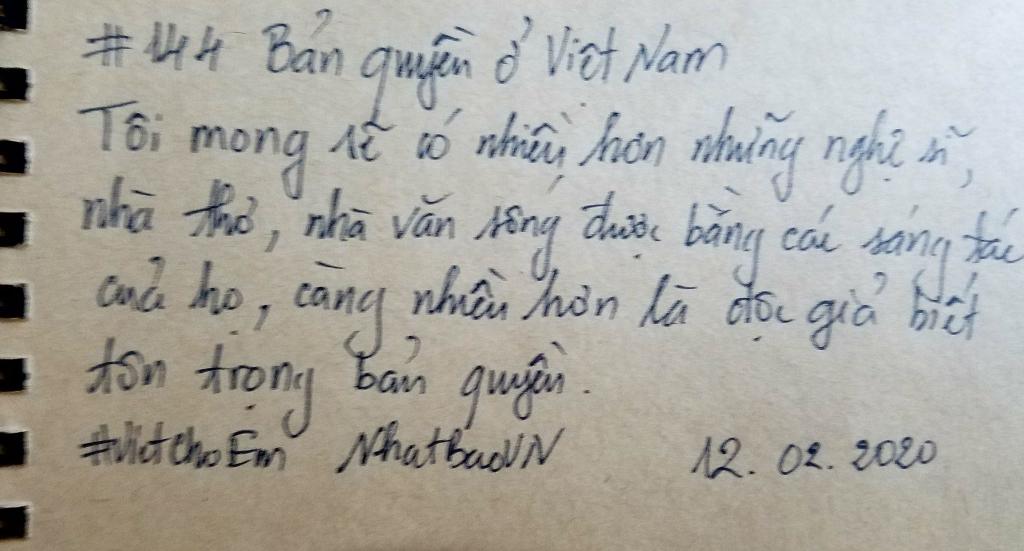 #144 Bản quyền ở Việt Nam
Tôi mong sẽ có nhiều hơn những nghệ sĩ,
nhà thơ, nhà văn sống được bằng các sáng tác
của họ, càng nhiều hơn là độc giả biết
tôn trọng bản quyền.
#ViếtchoEm NhatbaoVN 12.02.2020